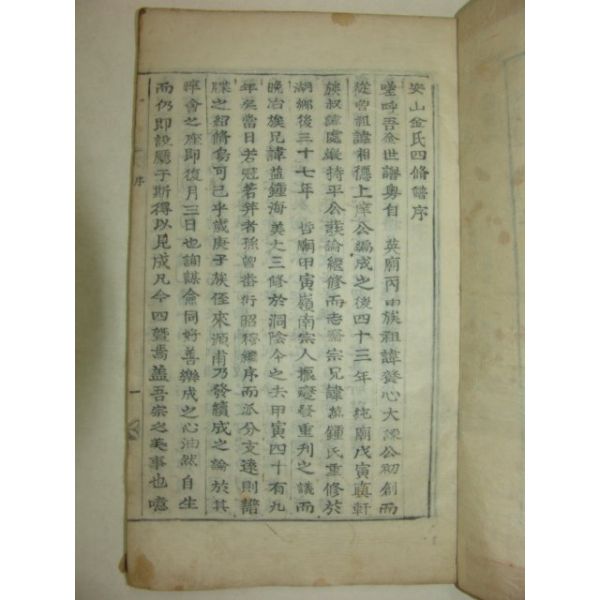 安山金氏四修譜序
嗟呼吾金世譜粤自 英廟丙申族祖諱養心大諫公刱創而
從曾祖諱相德上庠公編成之後四十三年 純廟戊寅眞軒
族叔諱處巖持平公蒐論繼修而老齋宗兄諱萬鍾氏重修於
湖鄉後三十七年 哲廟甲寅嶺南宗人振發發重刊之議而
晩冶族兄諱益鍾海美之三修於洞陰今之去甲寅四十有九
年矣當日若冠若弁者孫曾番衍昭穆繼序而派分支遠則譜
牒之紹修烏可已乎歲庚子族侄來源甫乃發續成之論於其
晬會之座即復月三日也詢謀僉同好善樂成之心油然自生
而仍即設廳于斯得以見成凡今四曁焉盖吾宗之美事也噫
序
一